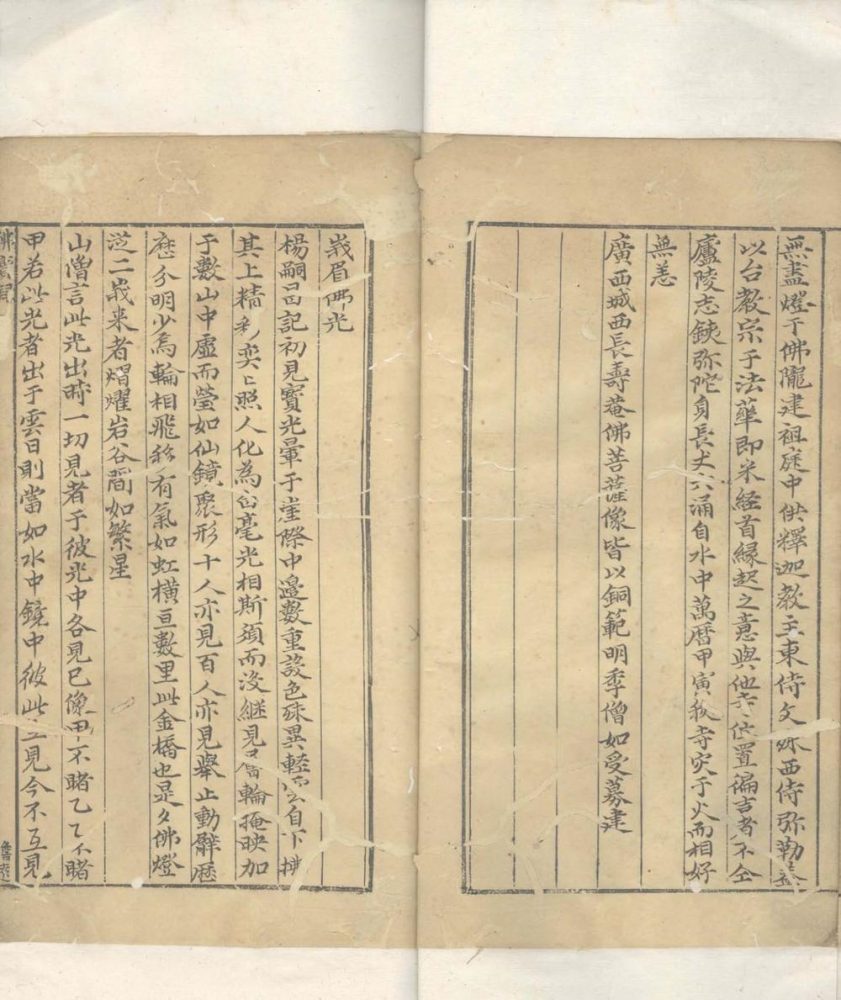 無盡燈于佛隴建祖庭中供釋迦教主東侍文殊西侍弥勒盖
以台教宗于法華即米経首縁起之意與他寺位置偏吉者不仝
廬陵志鉄弥陀身長丈六涌自水中萬曆甲寅秋寺灾于火而相好
無恙
廣西城西長壽菴佛菩薩像皆以銅範明季僧如受募建
峩眉佛光
楊嗣昌記初見寳光暈于崖際中邉數重設色殊異輕雲自下捧
其上精彩奕〻照人化為白毫光相斯須而沒継見層輪掩映加
于數山中虛而瑩如仙鏡聚形十人亦見百人亦見舉止動辭歷
歷分明少焉輪相飛移有氣如虹橫亘數里此金橋也是夕佛燈
泛二峩来者熠燿岩谷間如繁星
山僧言此光出時一切見者于彼光中各見已像甲不睹乙乙不睹
甲若此光者出于雲日則當如水中鏡中彼此互見今不互見